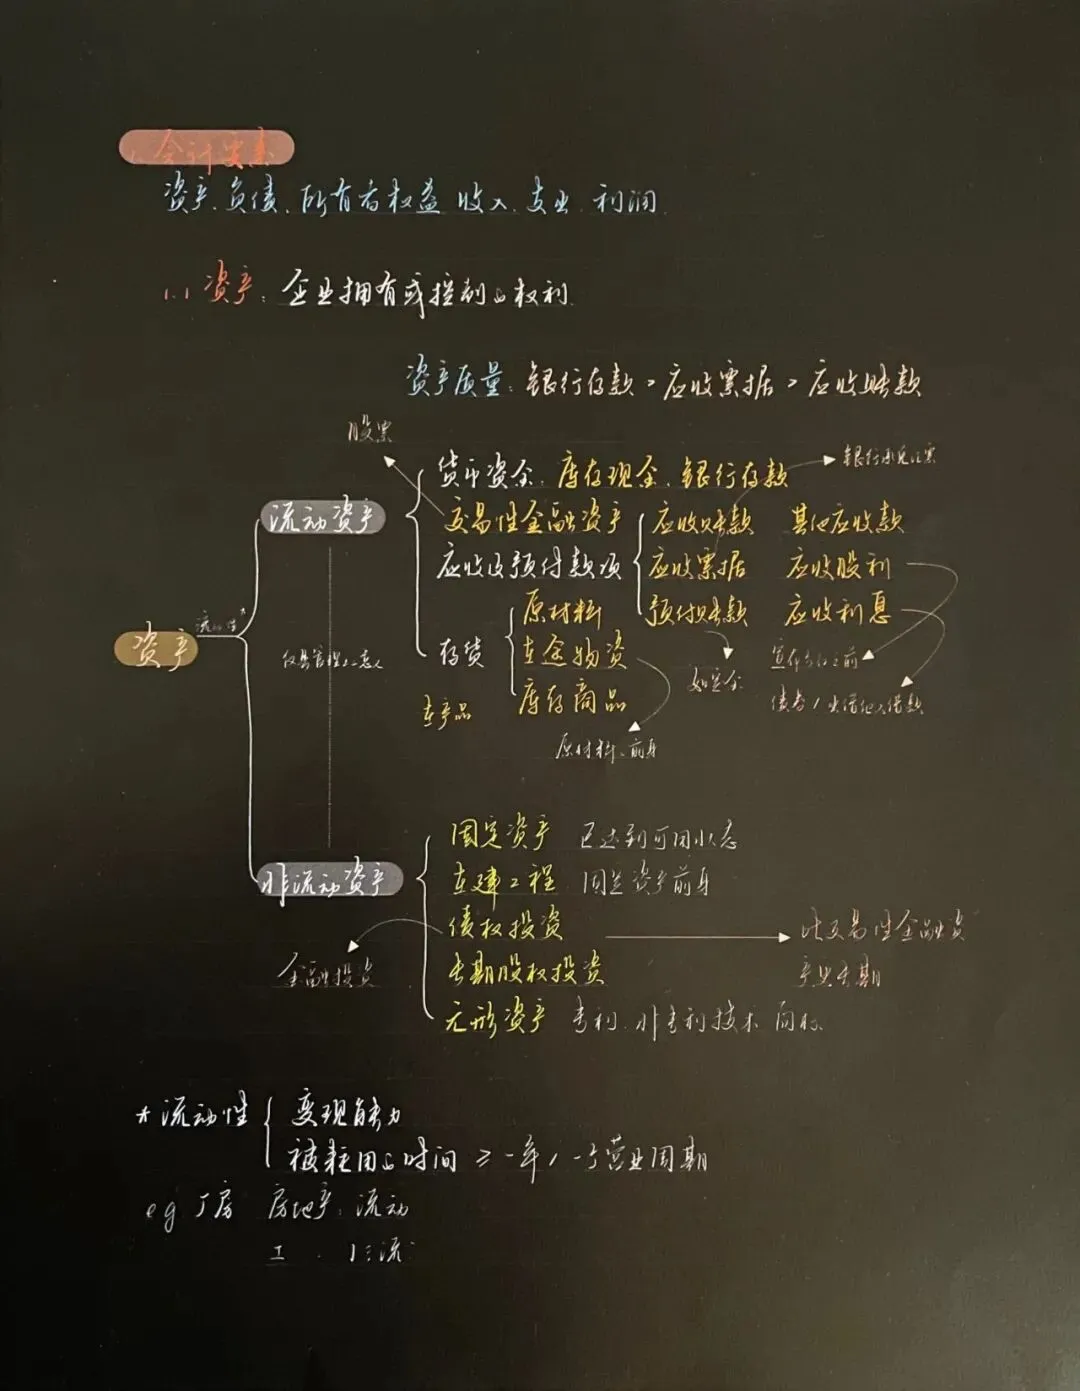 1. 会计要素
资产、负债、所有者权益 收入、支出、利润
1.1 资产：企业拥有或控制の权利
资产质量：银行存款 > 应收票据 > 应收账款
股票
货币资金：库存现金、银行存款
银行承兑汇票
流动资产
交易性金融资产
应收账款 其他应收款
应收及预付款项
应收票据 应收股利
原材料
预付账款 应收利息
资产
流动性*
存货
在途物资
如定金
宣布分红之前
仅是管理上の意义
库存商品
在产品
债券/出借他人借款
原材料の前身
固定资产 已达到可用状态
非流动资产
在建工程 固定资产前身
债权投资
比交易性金融资
产更长期
金融投资
长期股权投资
无形资产 专利、非专利技术 商标
* 流动性
变现能力
被耗用の时间 ≥ 一年/一个营业周期
eg 厂房 房地产：流动
工